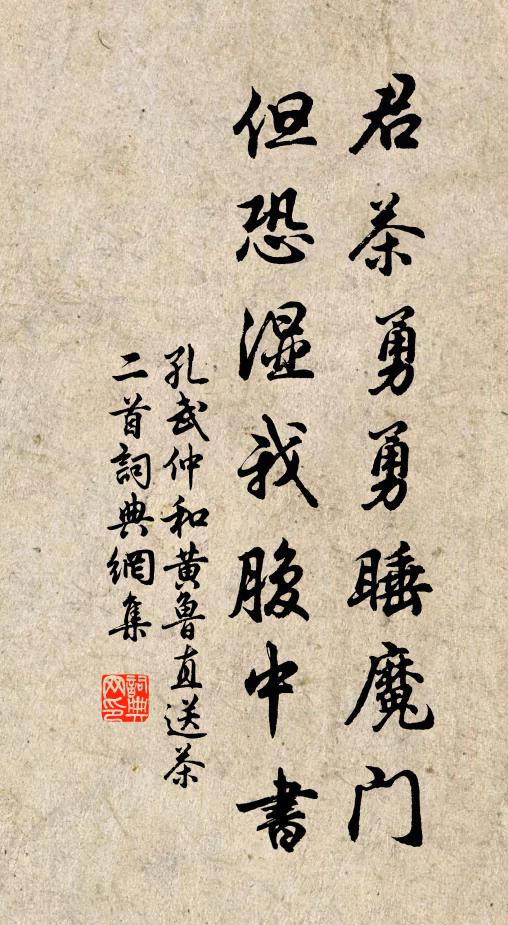 君茶勇勇睡魔门
但恐湿我腹中書
孔武仲和黄魯直送茶
二首詞典網集
詞典網印